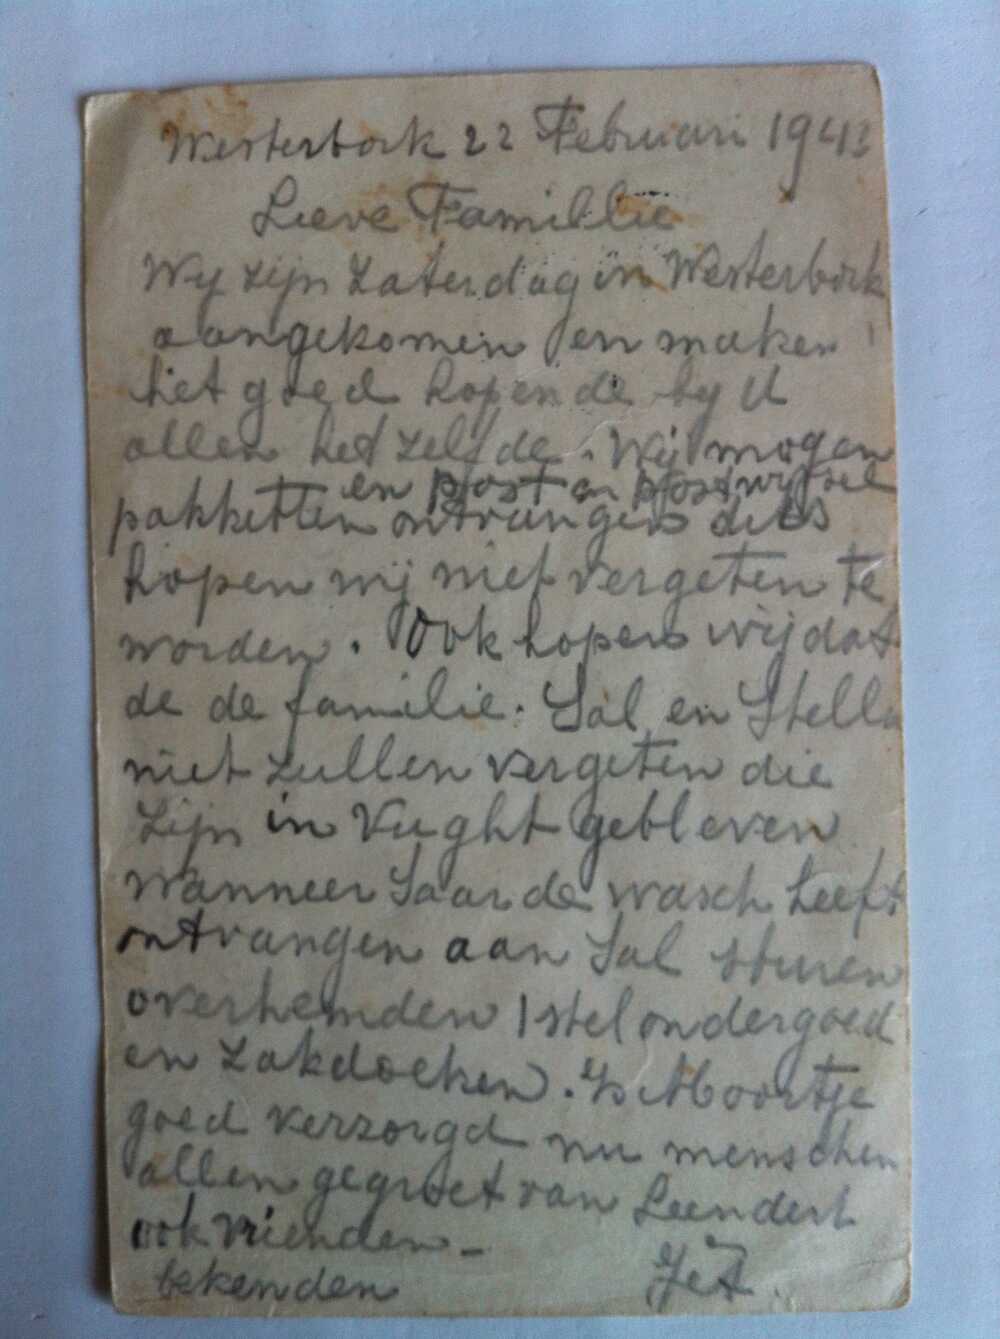 Westerbork 22 Februari 1943
Lieve Famillie
Wij zijn zaterdag in Westerbork
aangekomen en maken
het goed hopende bij U
allen het zelfde. Wij mogen
en post en postwissel
pakketten ontvangen dus
hopen wij niet vergeten te
worden. Ook hopen wij dat
de de familie. Sal en Stella
niet zullen vergeten die
zijn in Vught gebleven
wanneer Saar de wasch heeft
ontvangen aan Sal sturen
overhemden 1 stel ondergoed
en zakdoeken. Is Moortje
goed verzorgd nu menschen
allen gegroet van Leendert
ook vrienden - Jet.
bekenden